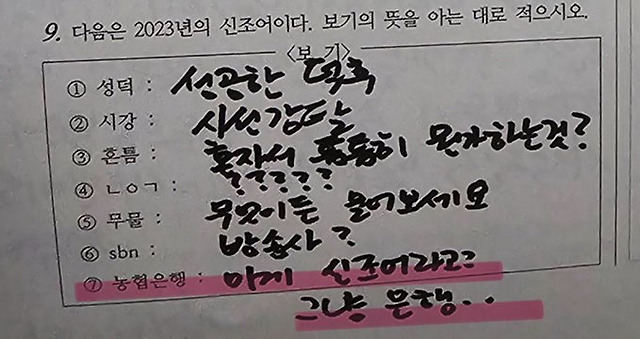 9. 다음은 2023년의 신조어이다. 보기의 뜻을 아는 대로 적으시오.
<보 기>
① 성덕 : 선관한 덕후
② 시강 : 시선강탈
③ 혼틈 : 혼자서 틈틈히 뭔가하는것?
④ ㄴㅇㄱ : ?????
⑤ 무물 : 무엇이든 물어보세요
⑥ sbn : 방송사?
⑦ 농협은행 : 이게 신조어라고?
그냥 은행..